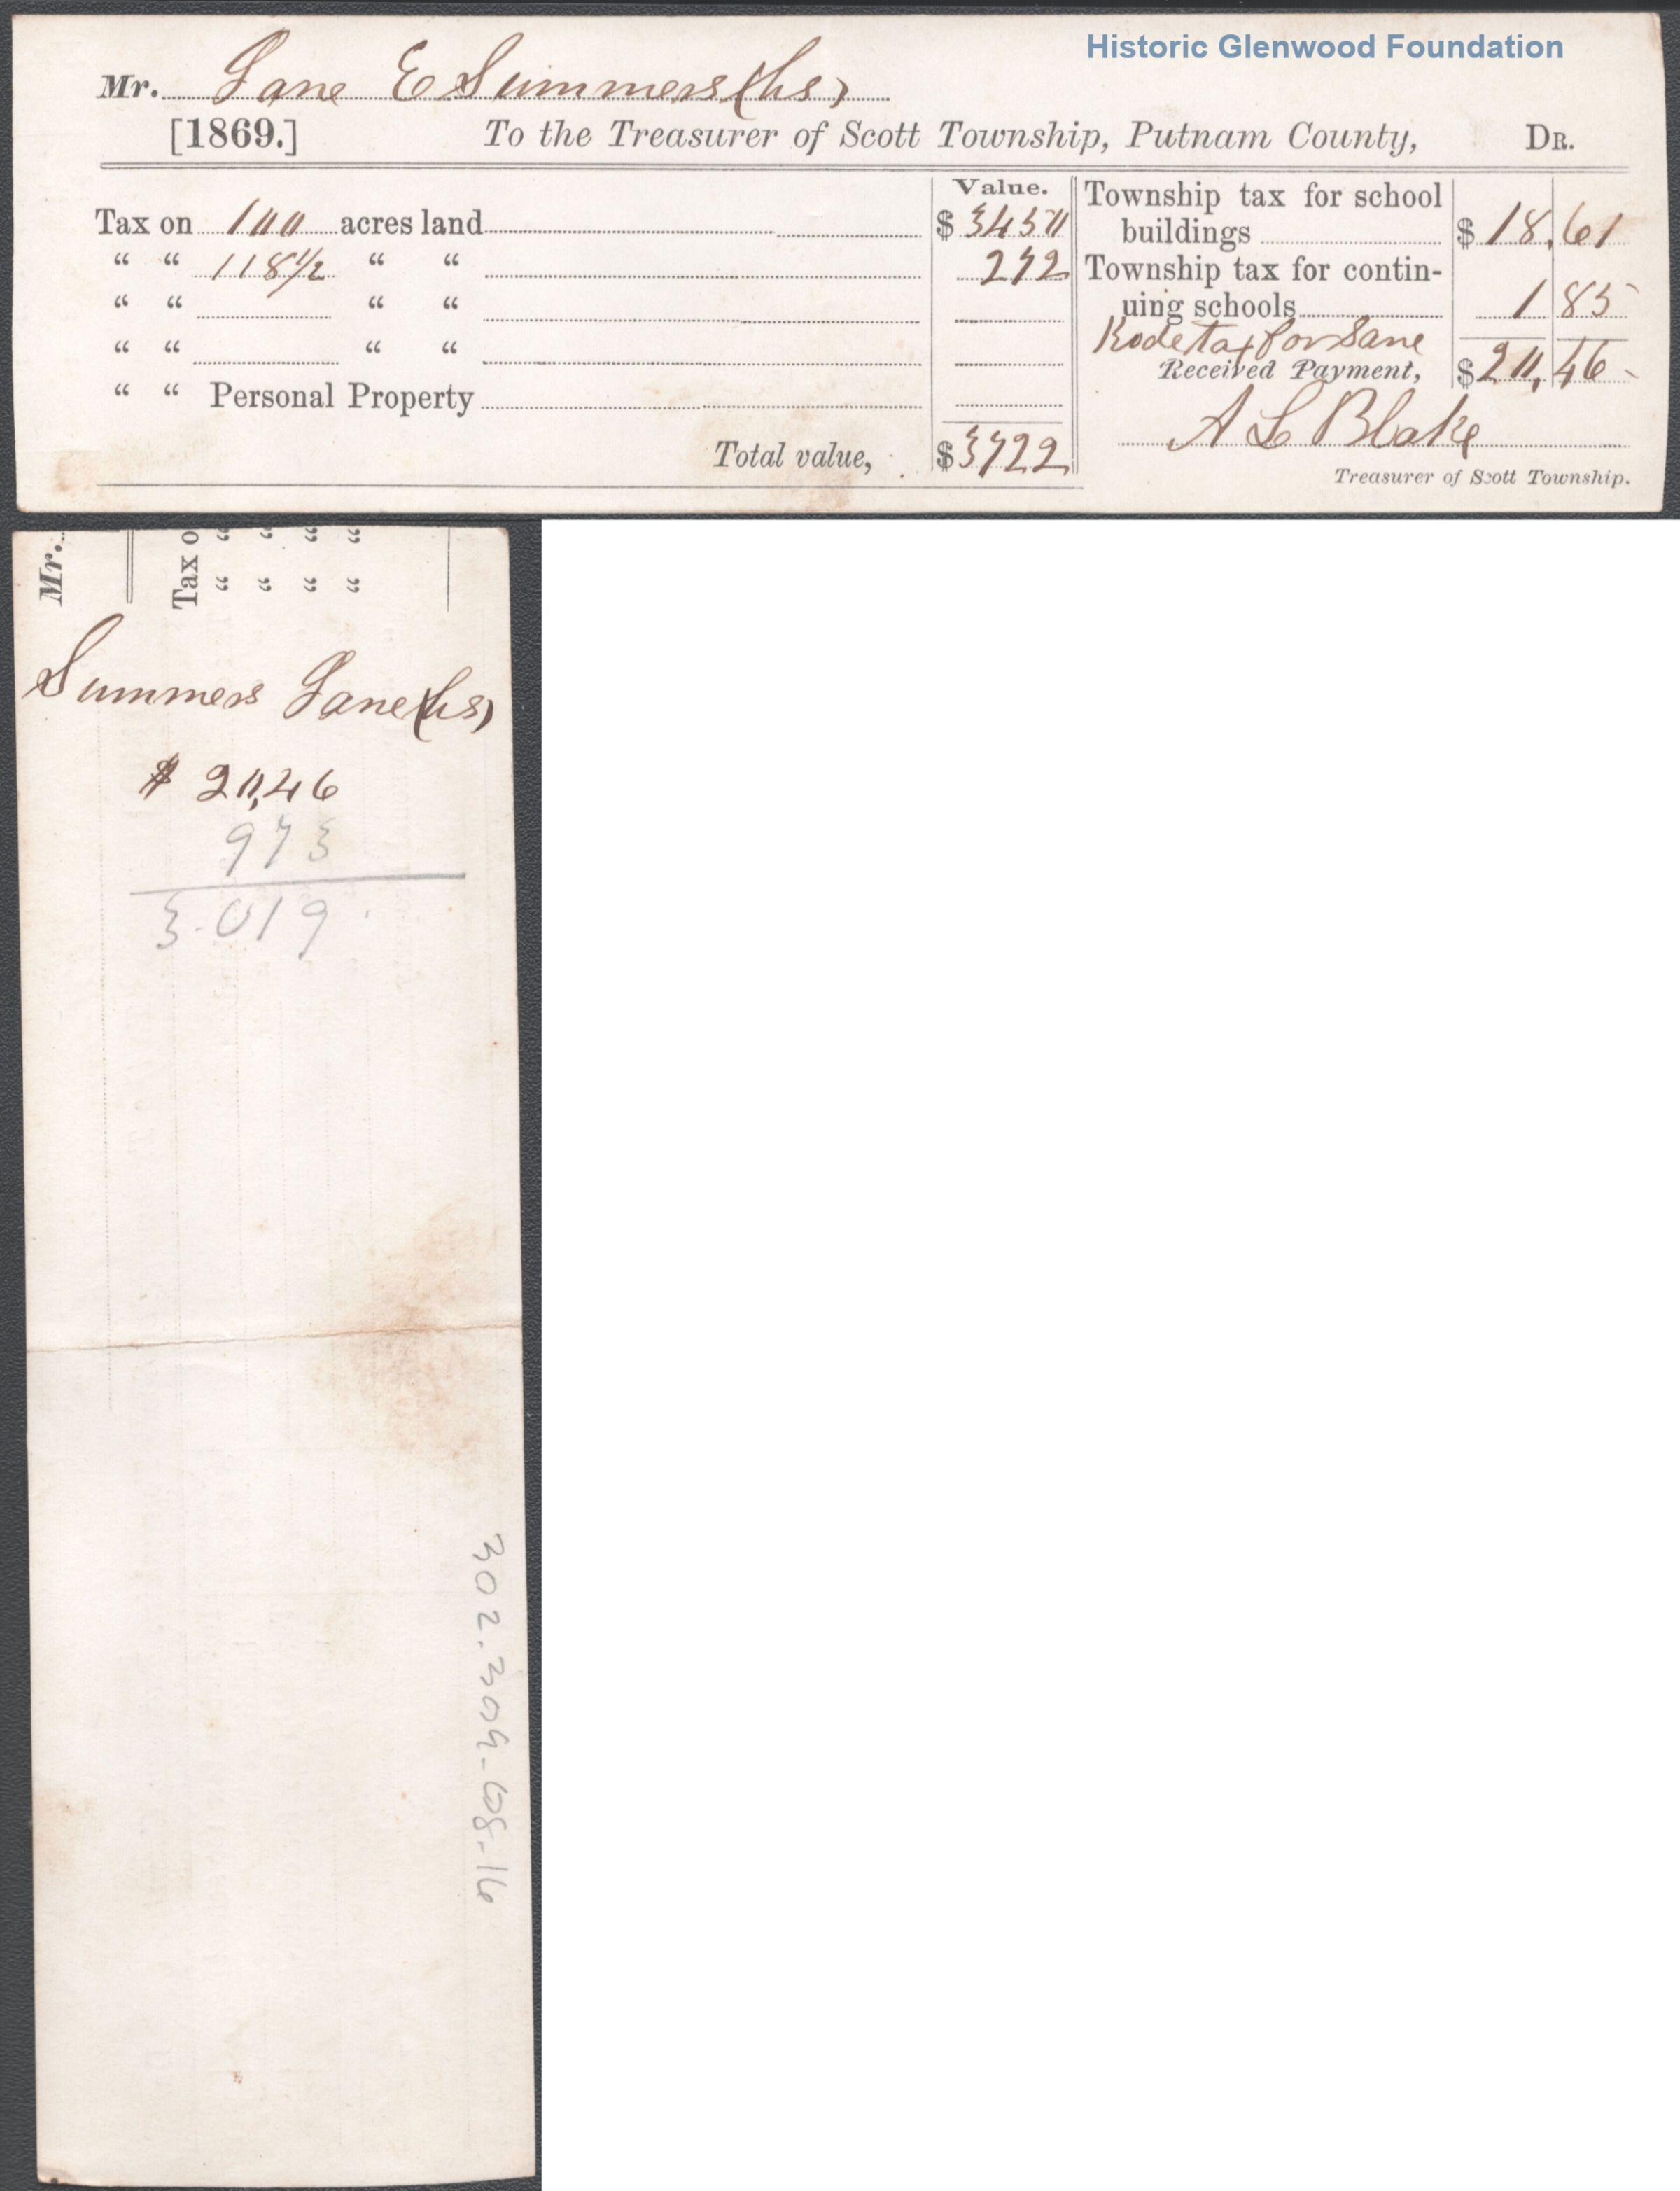 Historic Glenwood Foundation
Mr. Jane E Summers (hs)
[1869.] To the Treasurer of Scott Township, Putnam County, DR.
Value.
Tax on 100 acres land $ 3450
“ “ 118 1/2 “ “ 272
“ “ “ “
“ “ “ “
“ “ Personal Property
Total value, $ 3722
Township tax for school
buildings $ 18.61
Township tax for contin-
uing schools 1 85
Rode tax for Same
Received Payment, $ 20.46
A L Blake
Treasurer of Scott Township.
Mr.
Tax o
” ”
” ”
” ”
” ”
Summers Jane (hs)
$ 20,46
973
3.019
302.309-608-16